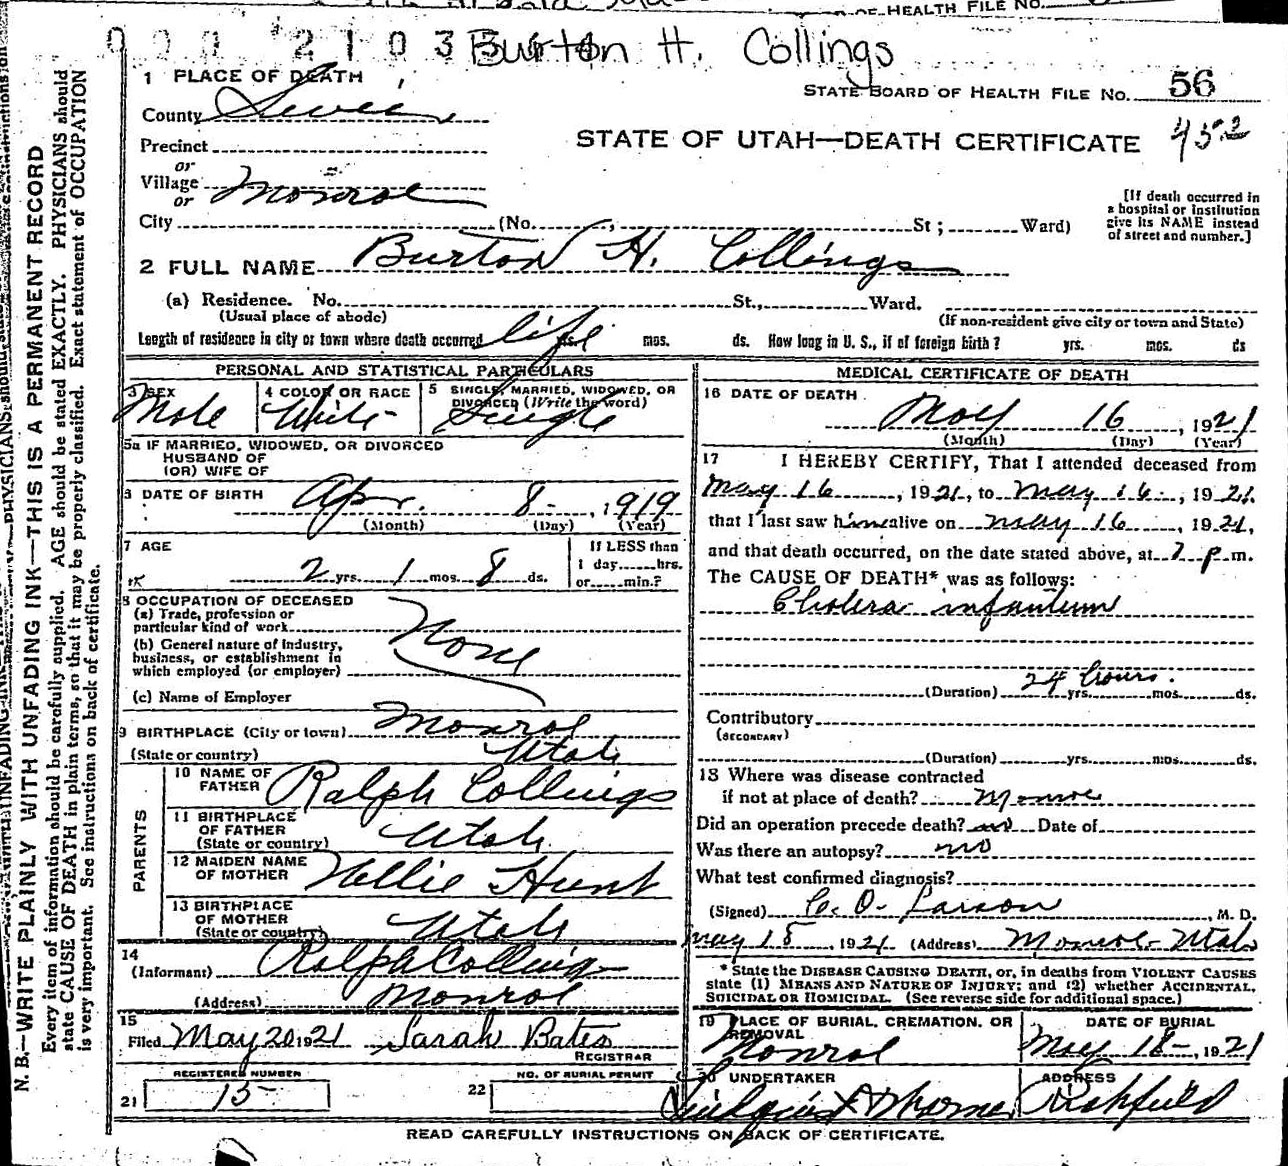 OF HEALTH FILE NO.
Burton H. Collings
1 PLACE OF DEATH
STATE BOARD OF HEALTH FILE NO. 56
County Sevier
STATE OF UTAH—DEATH CERTIFICATE
Precinct
or
Village Monroe
or
[If death occurred in
a hospital or institution
give its NAME instead
of street and number.]
City (No. St; Ward)
2 FULL NAME Burton H. Collings
(a) Residence. No. St., Ward.
(Usual place of abode)
(If non-resident give city or town and State)
Length of residence in city or town where death occurred life yrs. mos. ds. How long in U. S., if of foreign birth? yrs. mos. ds
PERSONAL AND STATISTICAL PARTICULARS
3 SEX
Male
4 COLOR OR RACE
White
5 SINGLE, MARRIED, WIDOWED, OR
DIVORCED (Write the word)
Single
5a IF MARRIED, WIDOWED, OR DIVORCED
HUSBAND OF
(OR) WIFE OF
6 DATE OF BIRTH Apr. 8 1919
(Month) (Day) (Year)
7 AGE
2 yrs. 1 mos. 8 ds.
If LESS than
1 day hrs.
or min.?
8 OCCUPATION OF DECEASED
(a) Trade, profession or
particular kind of work
(b) General nature of industry,
business, or establishment in
which employed (or employer)
None
(c) Name of Employer
9 BIRTHPLACE (City or town) Monroe
(State or country) Utah
PARENTS
10 NAME OF
FATHER Ralph Collings
11 BIRTHPLACE
OF FATHER
(State or country) Utah
12 MAIDEN NAME
OF MOTHER Nellie Hunt
13 BIRTHPLACE
OF MOTHER
(State or country) Utah
14
(Informant) Ralph Collings
(Address) Monroe
15
Filed May 20 1921 Sarah Bates
REGISTRAR
REGISTERED NUMBER
21 15
NO. OF BURIAL PERMIT
22
MEDICAL CERTIFICATE OF DEATH
16 DATE OF DEATH
May 16, 1921
(Month) (Day) (Year)
17 I HEREBY CERTIFY, That I attended deceased from
May 16, 1921, to May 16, 1921.
that I last saw him alive on May 16, 1921,
and that death occurred, on the date stated above, at 7 p.m.
The CAUSE OF DEATH* was as follows:
Cholera infantum
(Duration) 24 hours. yrs. mos. ds.
Contributory
(SECONDARY)
(Duration) yrs. mos. ds.
18 Where was disease contracted
if not at place of death? Monroe
Did an operation precede death? no Date of
Was there an autopsy? no
What test confirmed diagnosis?
(Signed) C. O. Larson, M. D.
May 18, 1921 (Address) Monroe Utah
* State the DISEASE CAUSING DEATH, or, in deaths from VIOLENT CAUSES
state (1) MEANS AND NATURE OF INJURY; and (2) whether ACCIDENTAL,
SUICIDAL OR HOMICIDAL. (See reverse side for additional space.)
19 PLACE OF BURIAL, CREMATION, OR
REMOVAL
Monroe
DATE OF BURIAL
May 18, 1921
20 UNDERTAKER
ADDRESS
Richfield
READ CAREFULLY INSTRUCTIONS ON BACK OF CERTIFICATE.
N. B.—WRITE PLAINLY WITH UNFADING INK—THIS IS A PERMANENT RECORD
Every item of information should be carefully supplied. AGE should be stated EXACTLY. PHYSICIANS should
state CAUSE OF DEATH in plain terms, so that it may be properly classified. Exact statement of OCCUPATION
is very important. See instructions on back of certificate.